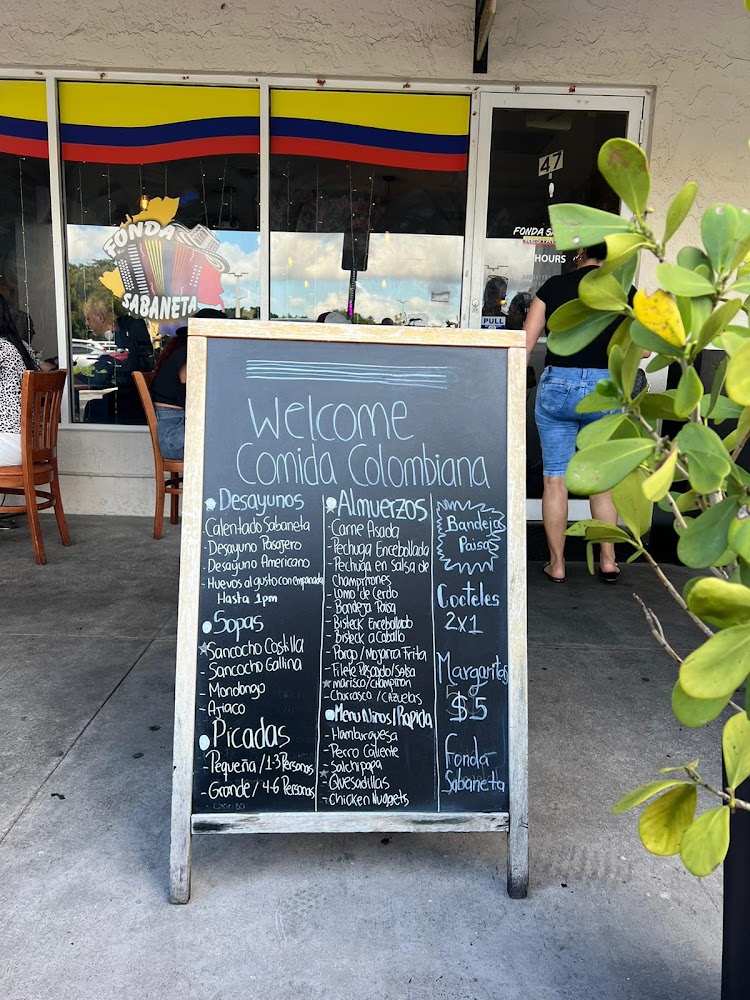 47
FONDA
SABANETA
FONDA
HOURS
PULL
Welcome
Comida Colombiana
Desayunos
- Calentado Sabaneta
- Desayuno Pasajero
- Desayuno Americano
- Huevos al gusto con empanada
Hasta 1pm
Sopas
Sancocho Costilla
- Sancocho Gallina
- Mondongo
- Ajiaco
Picadas
- Pequeña / 1-3 Personas
- Grande / 4-6 Personas
Almuerzos
- Carne Asada
- Pechuga Encebollada
- Pechuga en Salsa de
Champiñones
- Lomo de Cerdo
- Bandeja Paisa
- Bisteck Encebollado
- Bisteck a Caballo
- Pargo / Mojarra Frita
- Filete Pescado / Salsa
Marisco / Champiñon
- Churrasco / Cazuelas
Menu Niños / Rapida
- Hamburguesa
- Perro Caliente
- Salchipapa
- Quesadillas
- Chicken Nuggets
Bandeja
Paisa
Cocteles
2x1
Margaritas
$5
Fonda
Sabaneta